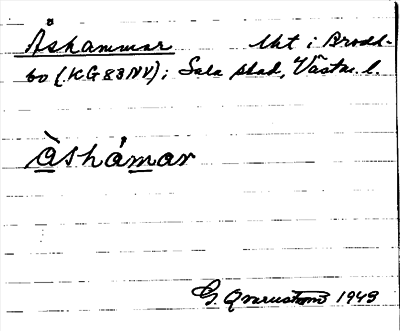 Åshammar Uht i Brodd-
bo (KG 83 NV); Sala stad, Västm. l.
àshámar
G. Qvarnström 1949